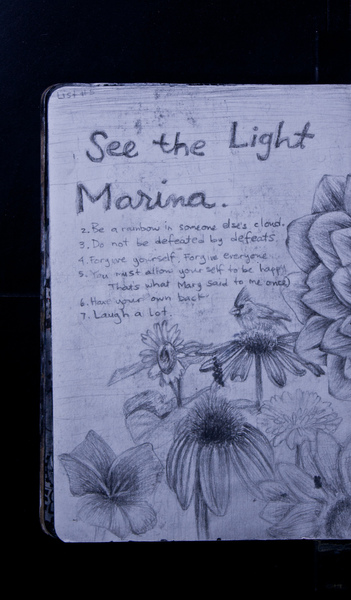 List #6
See the Light
Marina.
2. Be a rainbow in someone elses cloud.
3. Do not be defeated by defeats.
4. Forgive yourself. Forgive everyone.
5. You must allow yourself to be happy
Thats what Mary said to me once)
6. Have your own back
7. Laugh a lot.